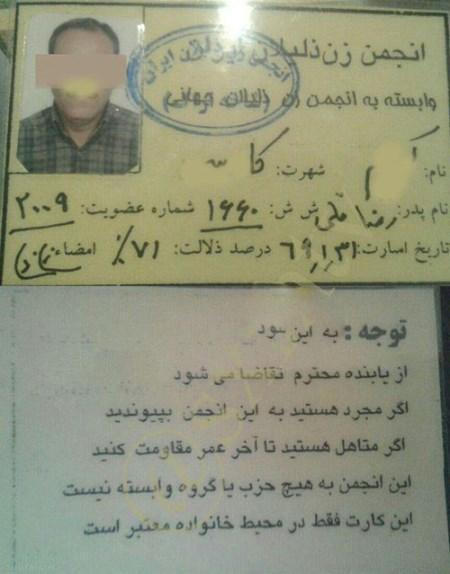 انجمن زن ذلیلان ایران
انجمن زن ذلیلان ایران
وابسته به انجمن زن ذلیلان جهانی
نام: شهرت: کا
نام پدر: رضا قلی ش ش: ۱۶۶۰ شماره عضویت: ۲۰۰۹
تاریخ اسارت: ۶۹/۱/۳۱ درصد ذلالت: ۷۱٪ امضاء:
توجه: به این سود
از یابنده محترم تقاضا می شود
اگر مجرد هستید به این انجمن بپیوندید
اگر متاهل هستید تا آخر عمر مقاومت کنید
این انجمن به هیچ حزب یا گروه وابسته نیست
این کارت فقط در محیط خانواده معتبر است